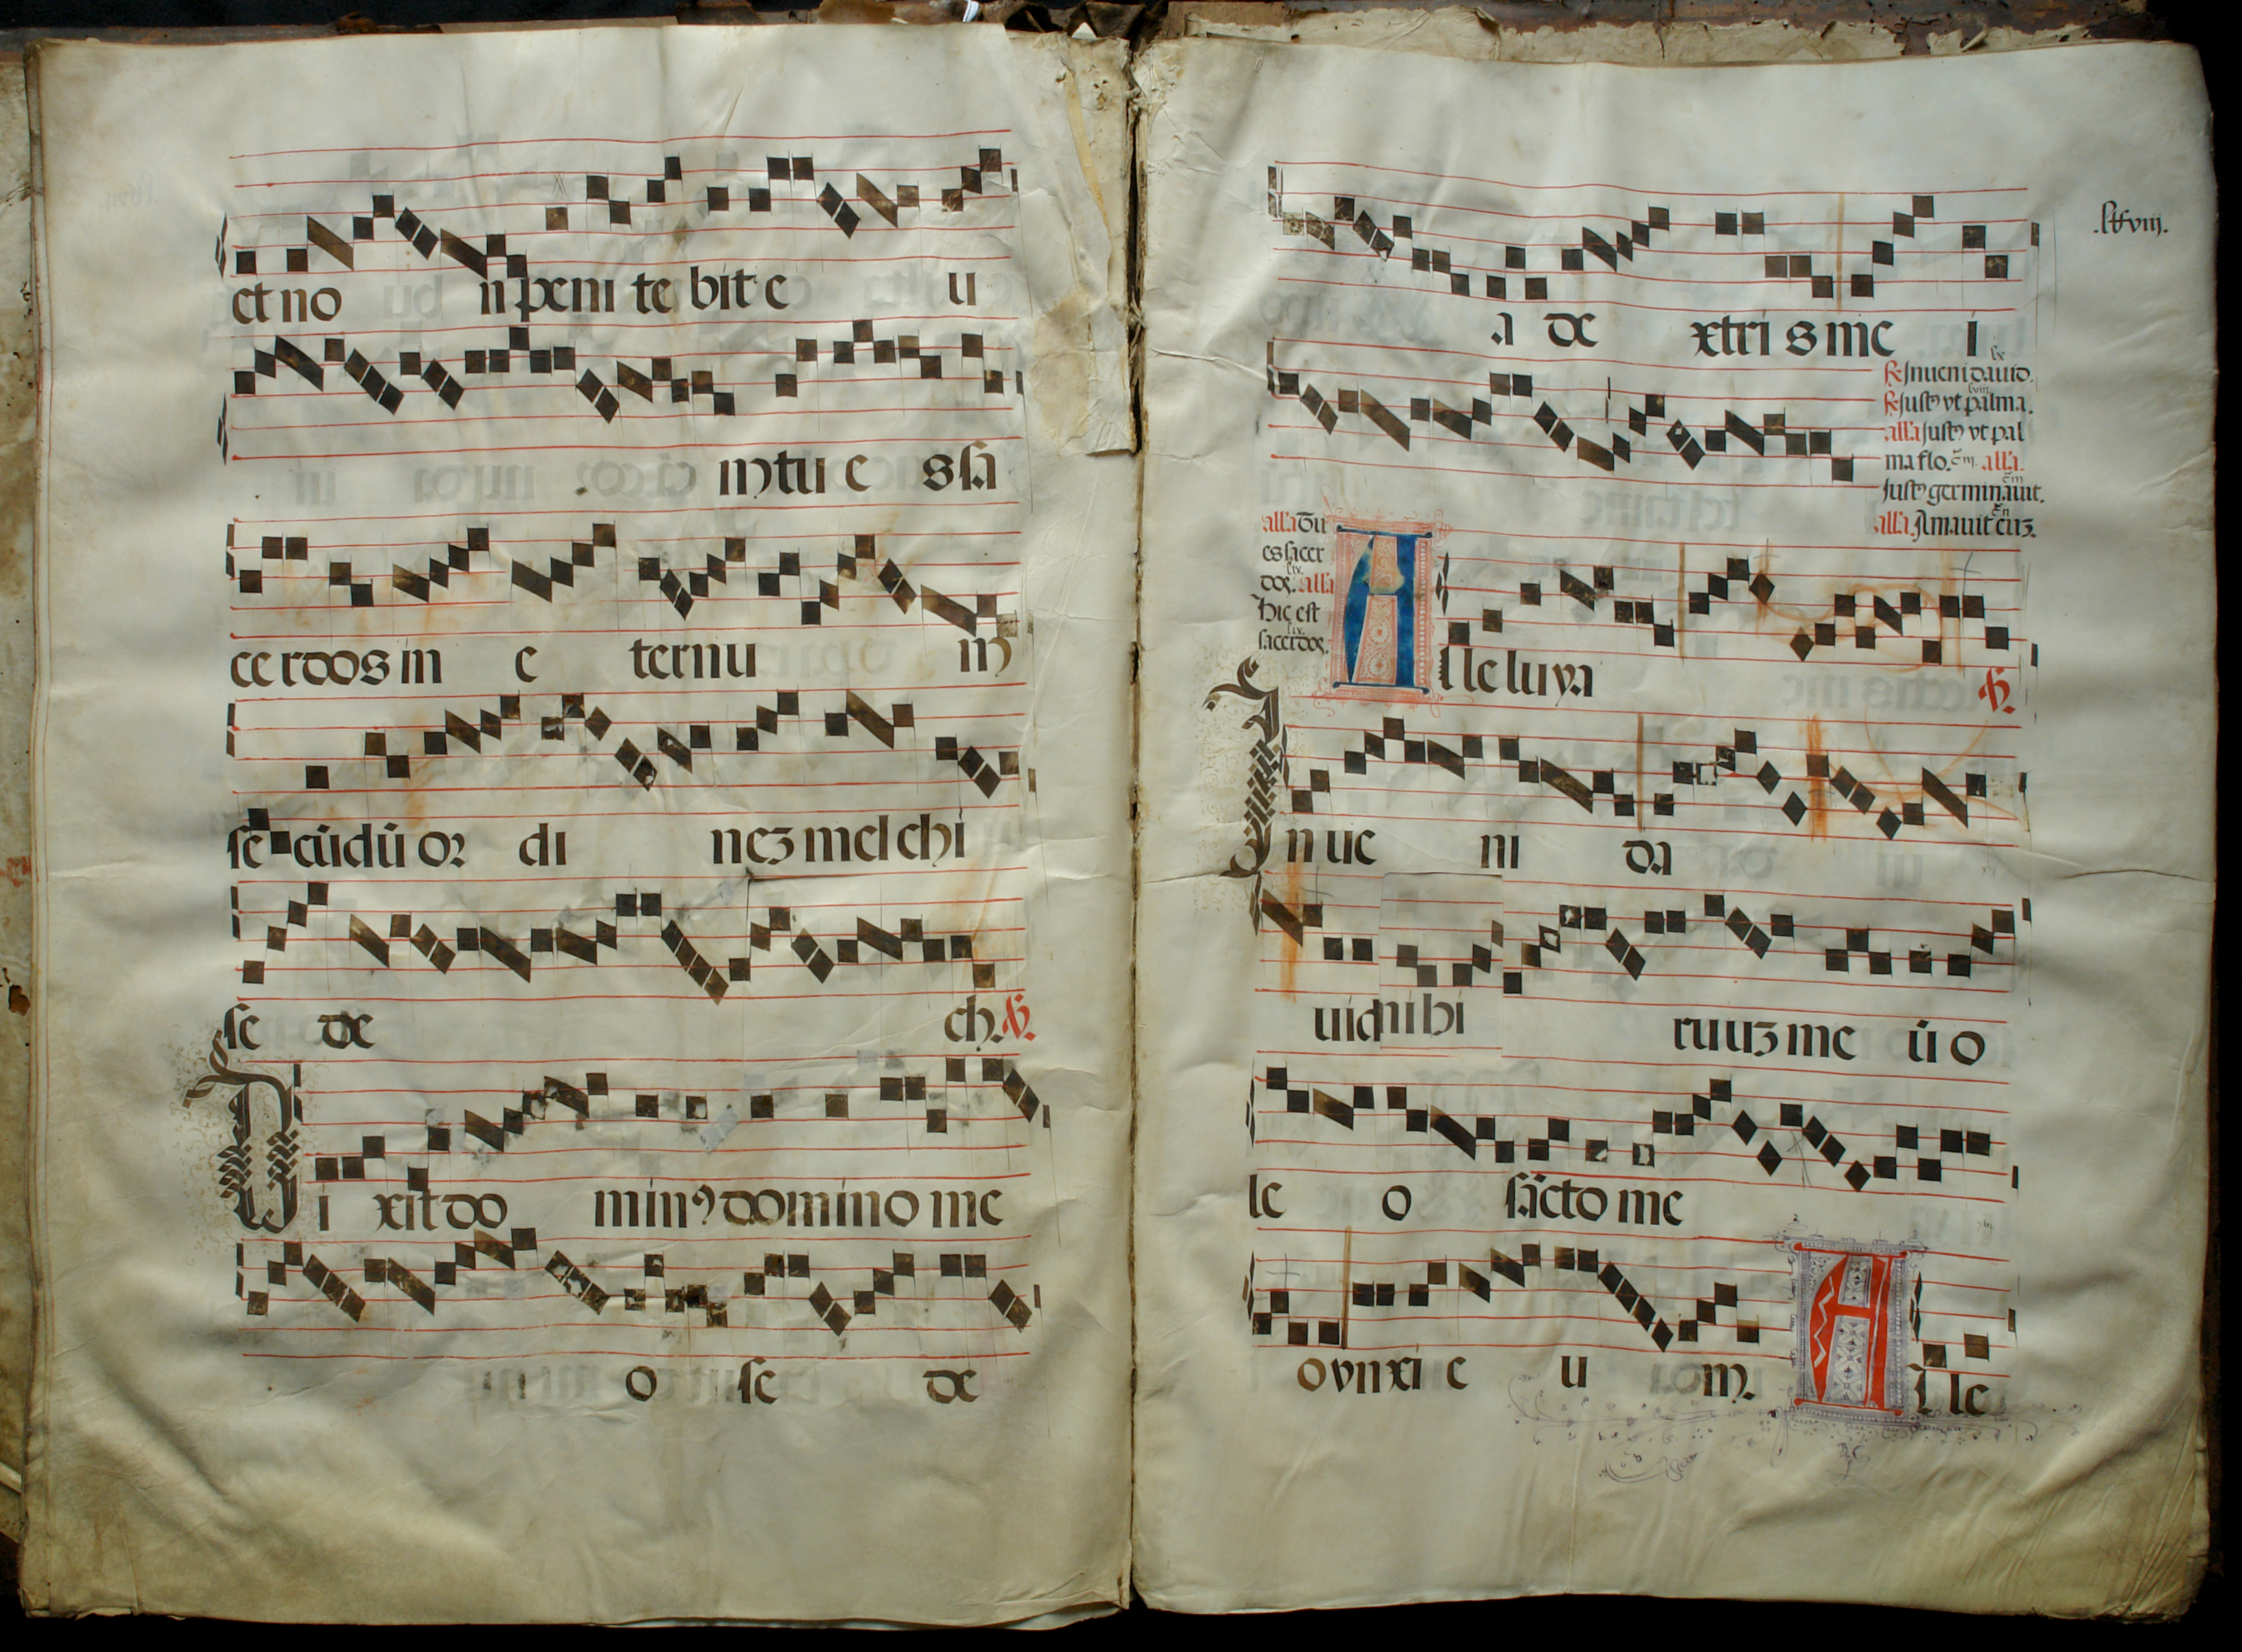 et no n peni te bit e u
m tu e s sa
ce rdos in e ternu m
se cūdū oꝛ di neꝫ mel chi
se de ch. ℟.
Di xit do minꝰ domino me
o se de
.lxviij.
a de xtri s me i
℟ Inueni dauid.
℟ Justꝰ vt palma.
alla Justꝰ vt pal
ma flo. alla.
Justꝰ germinauit.
alla. Amauit euꝫ.
alla Tu
es sacer
dos. alla
Hic est
sacerdos.
Alleluya ℣.
Inue ni da
uid mihi ruuꝫ me ū o
le o sācto me
o vnxi e u m. Alle